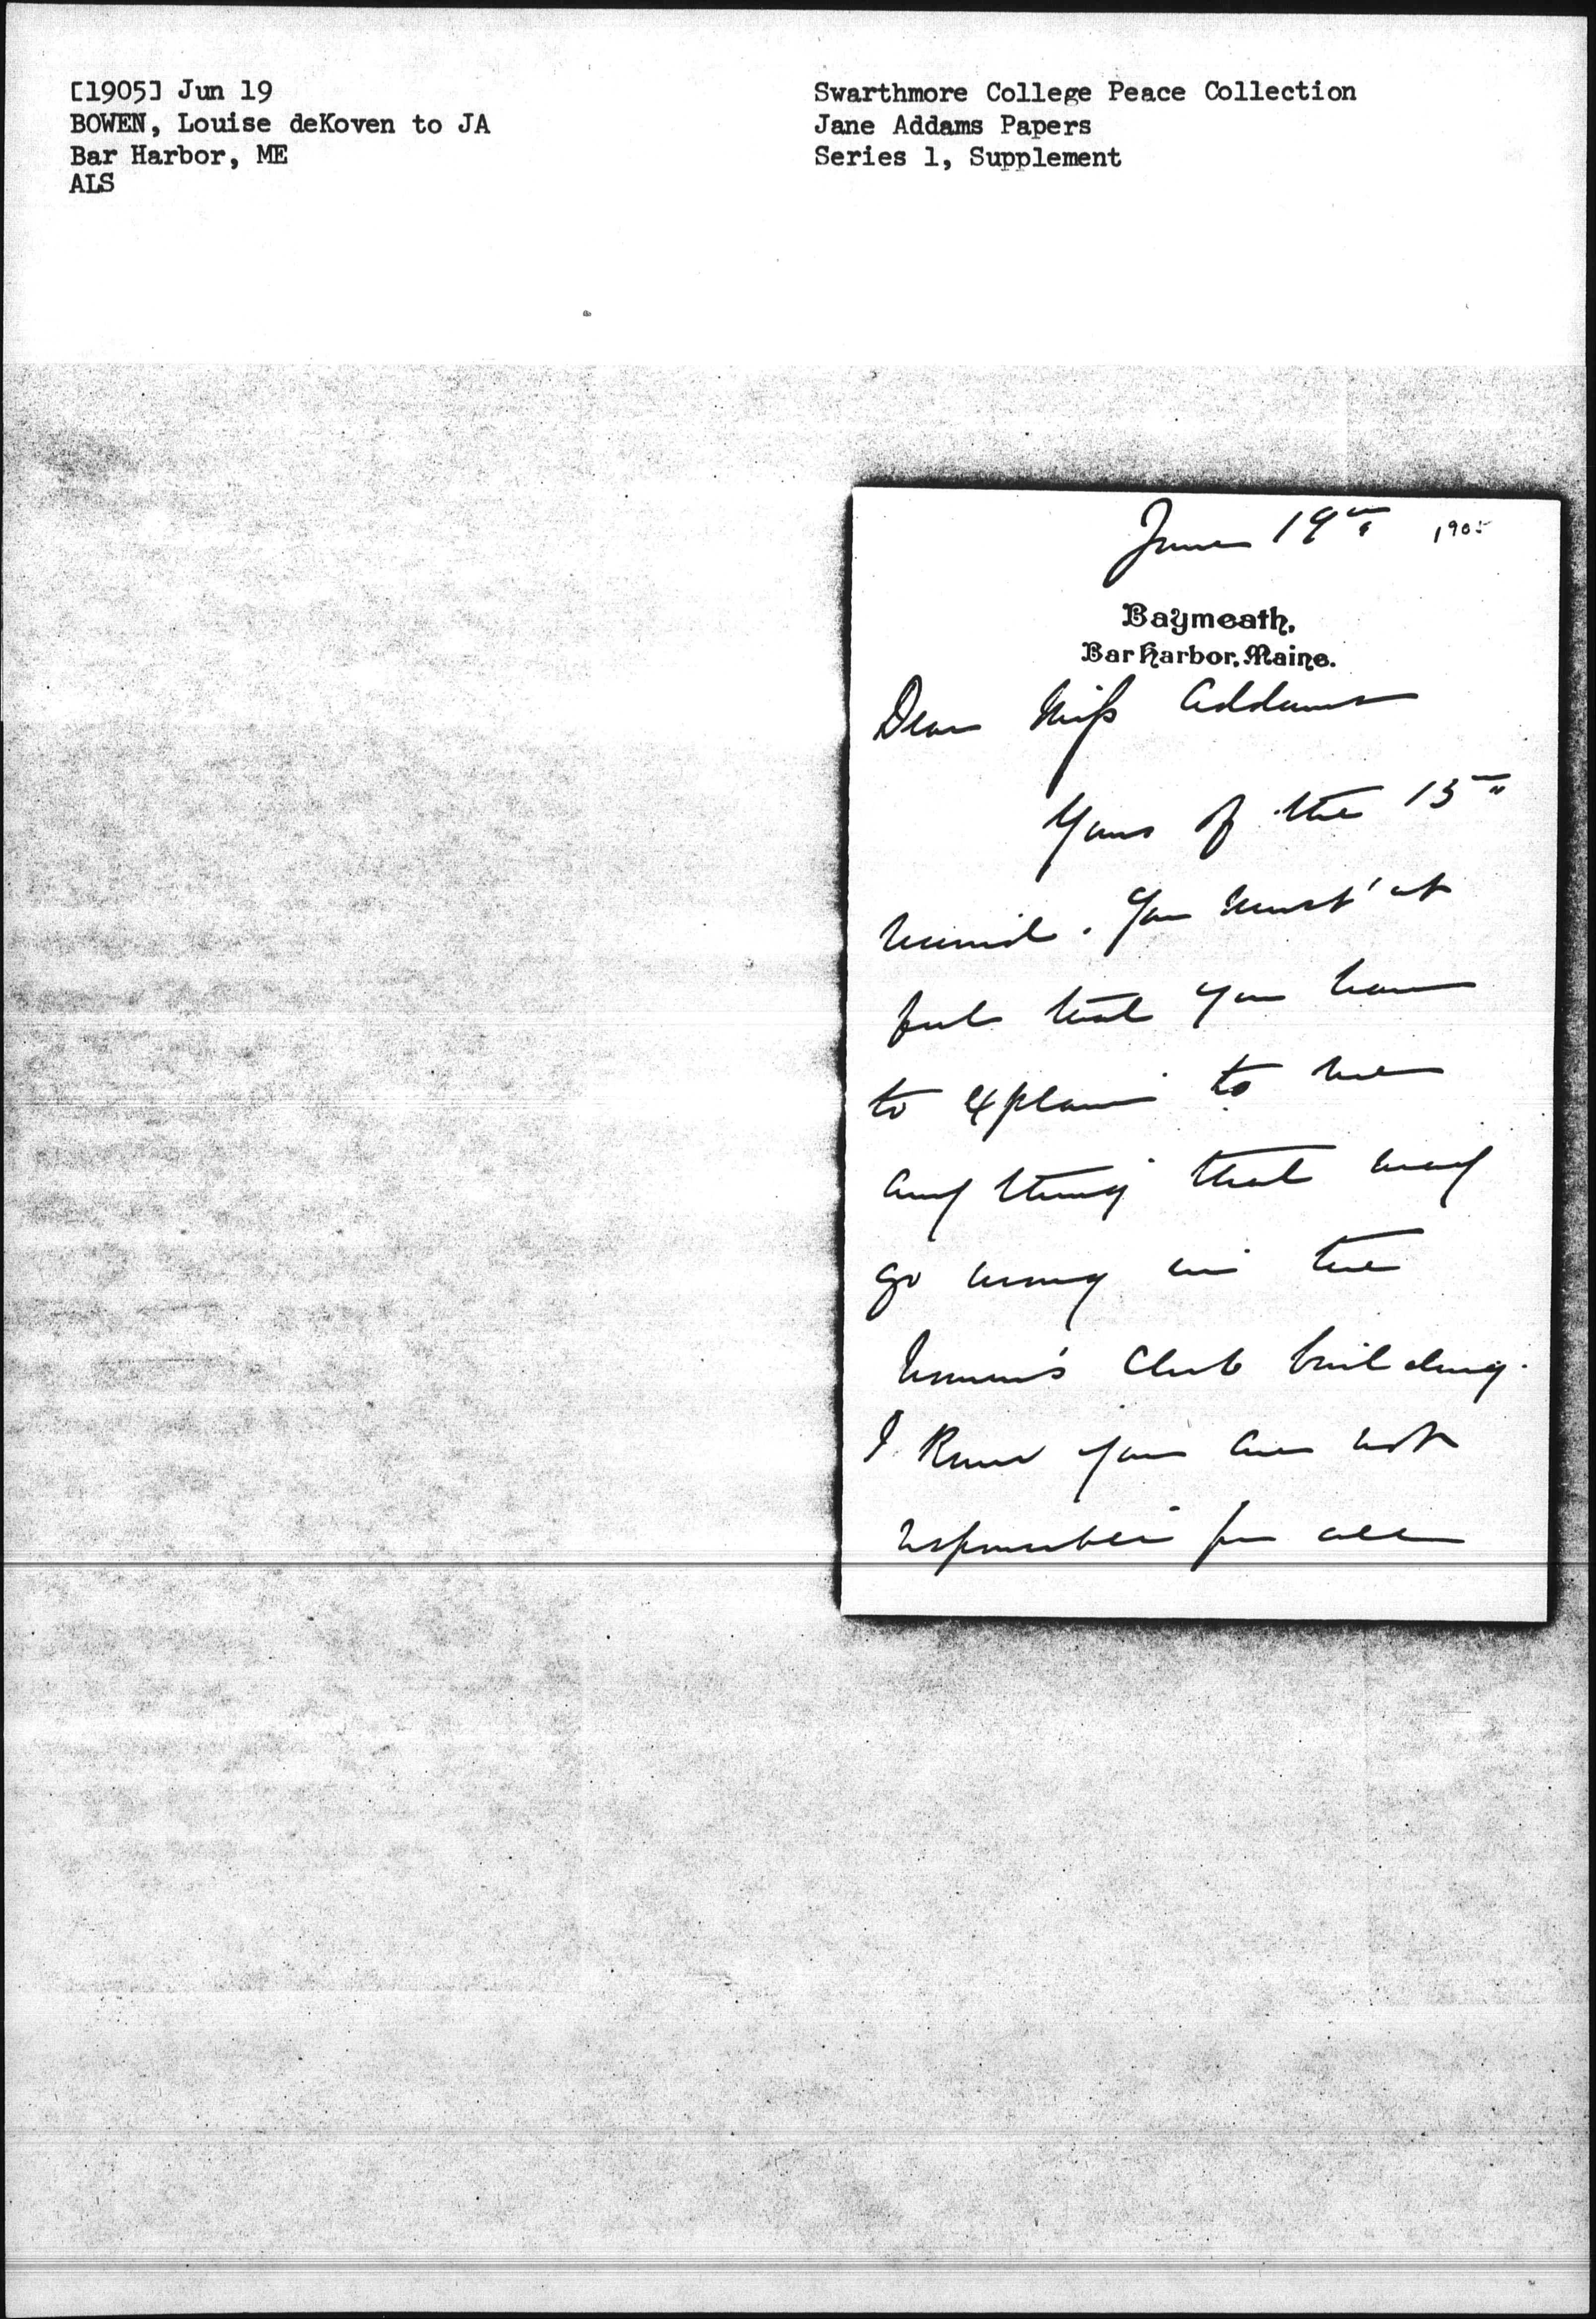 [1905] Jun 19
BOWEN, Louise deKoven to JA
Bar Harbor, ME
ALS
Swarthmore College Peace Collection
Jane Addams Papers
Series 1, Supplement
June 19th 1905
Baymeath,
Bar Harbor, Maine.
Dear Miss Addams
Yours of the 15th
received. You must'nt
feel that you have
to explain to me
any thing that may
go wrong in the
Woman's Club building.
I know you are not
responsible for all